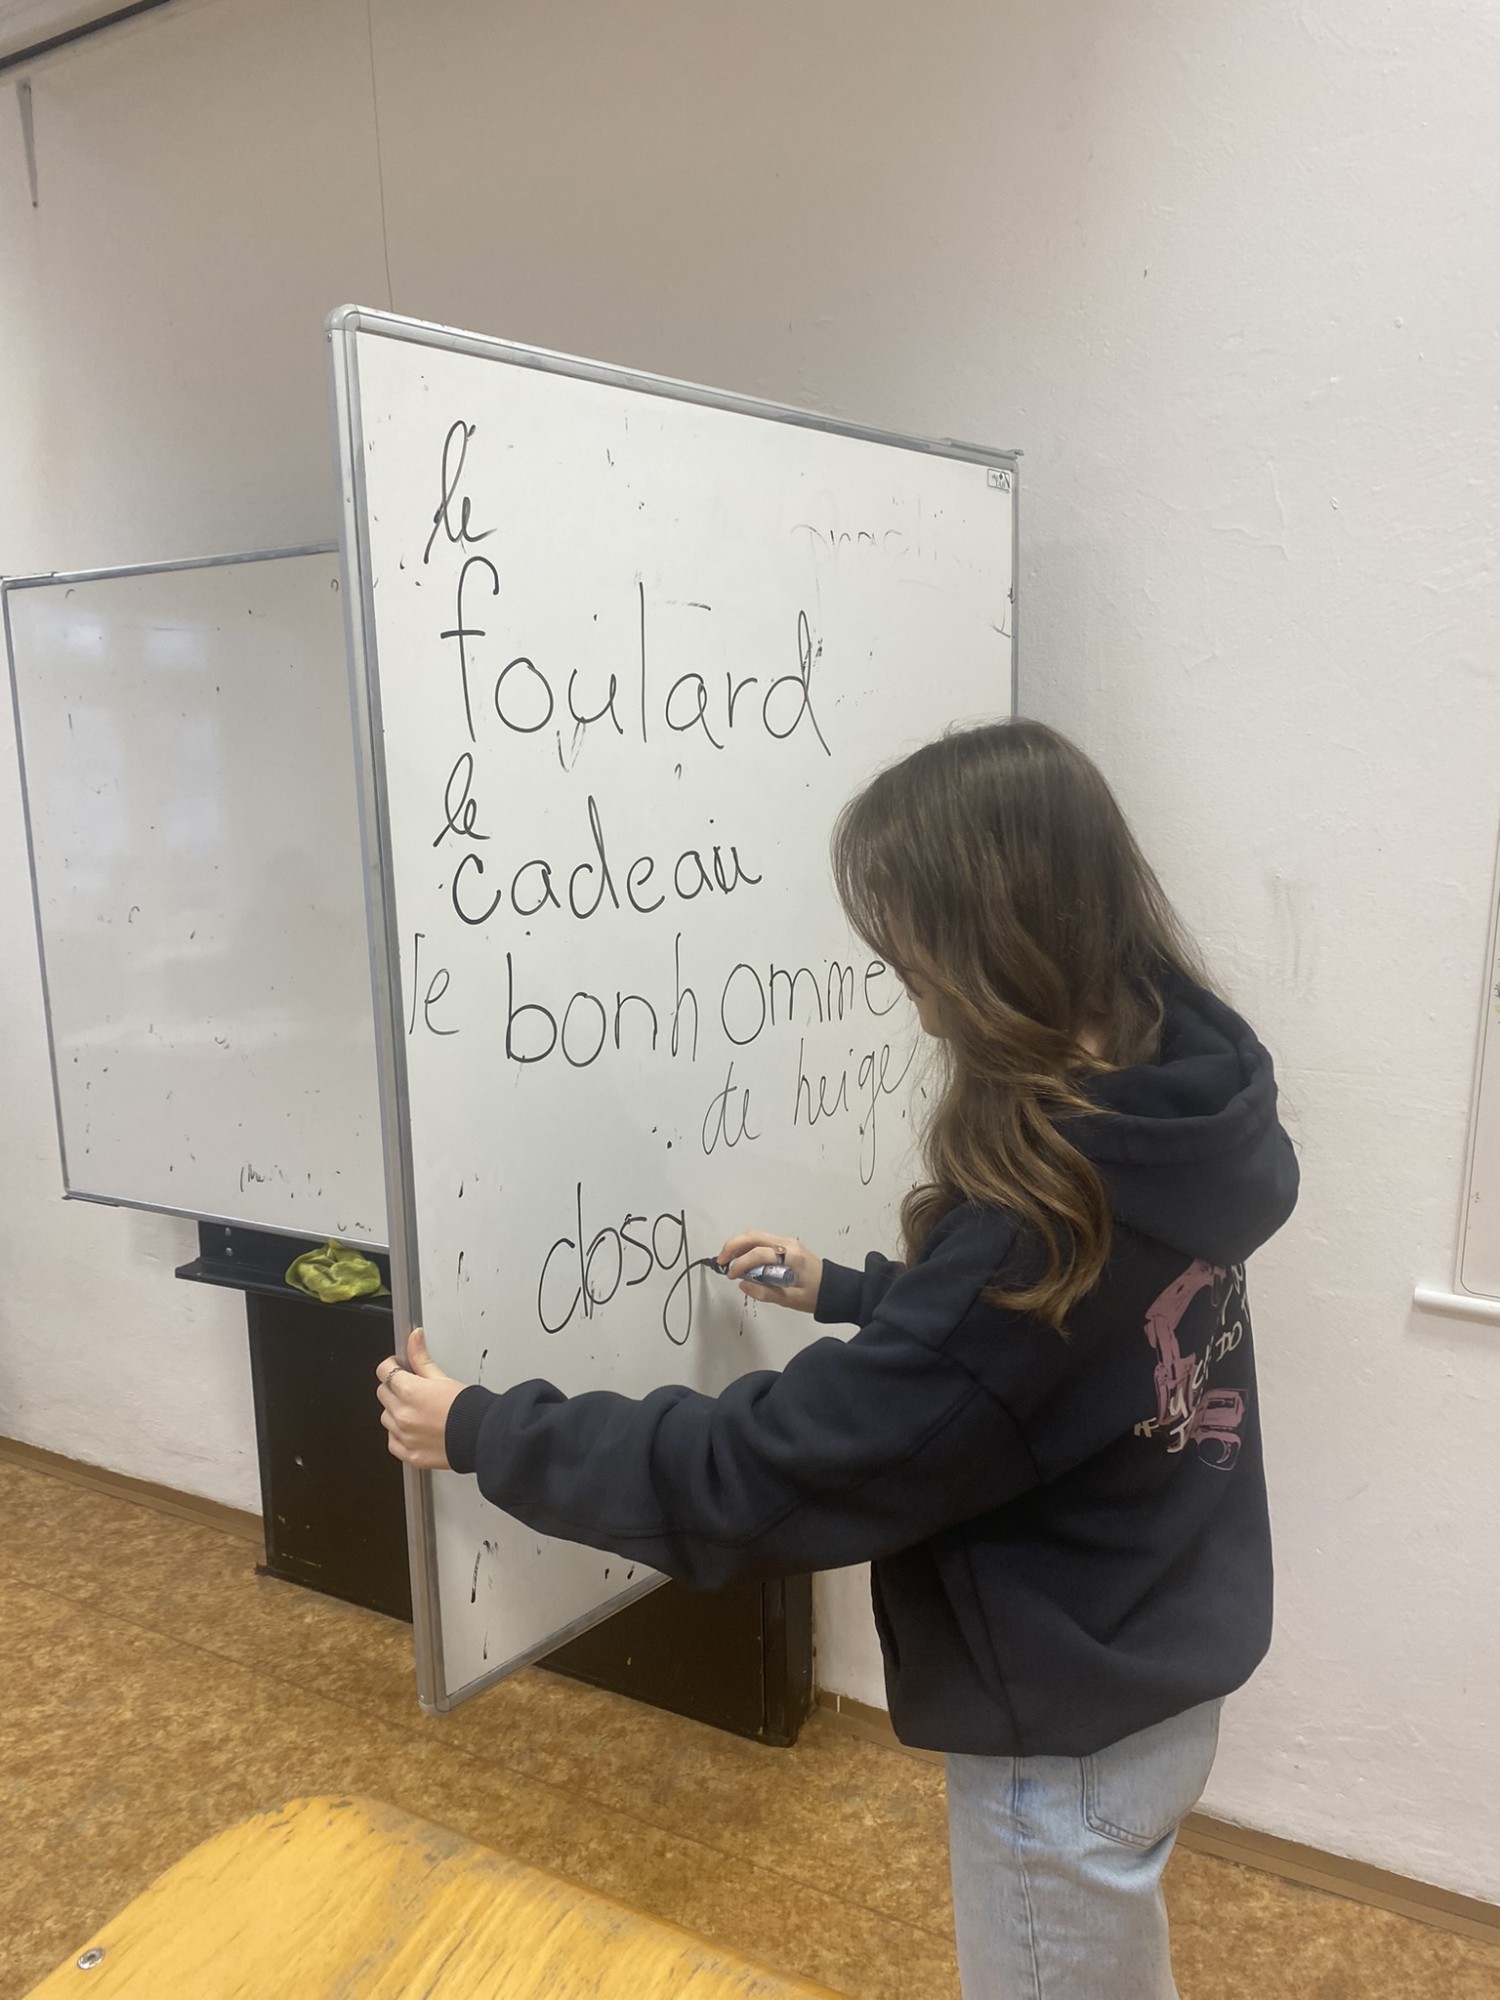 le
foulard
le
cadeau
le bonhomme
de neige
cbsg